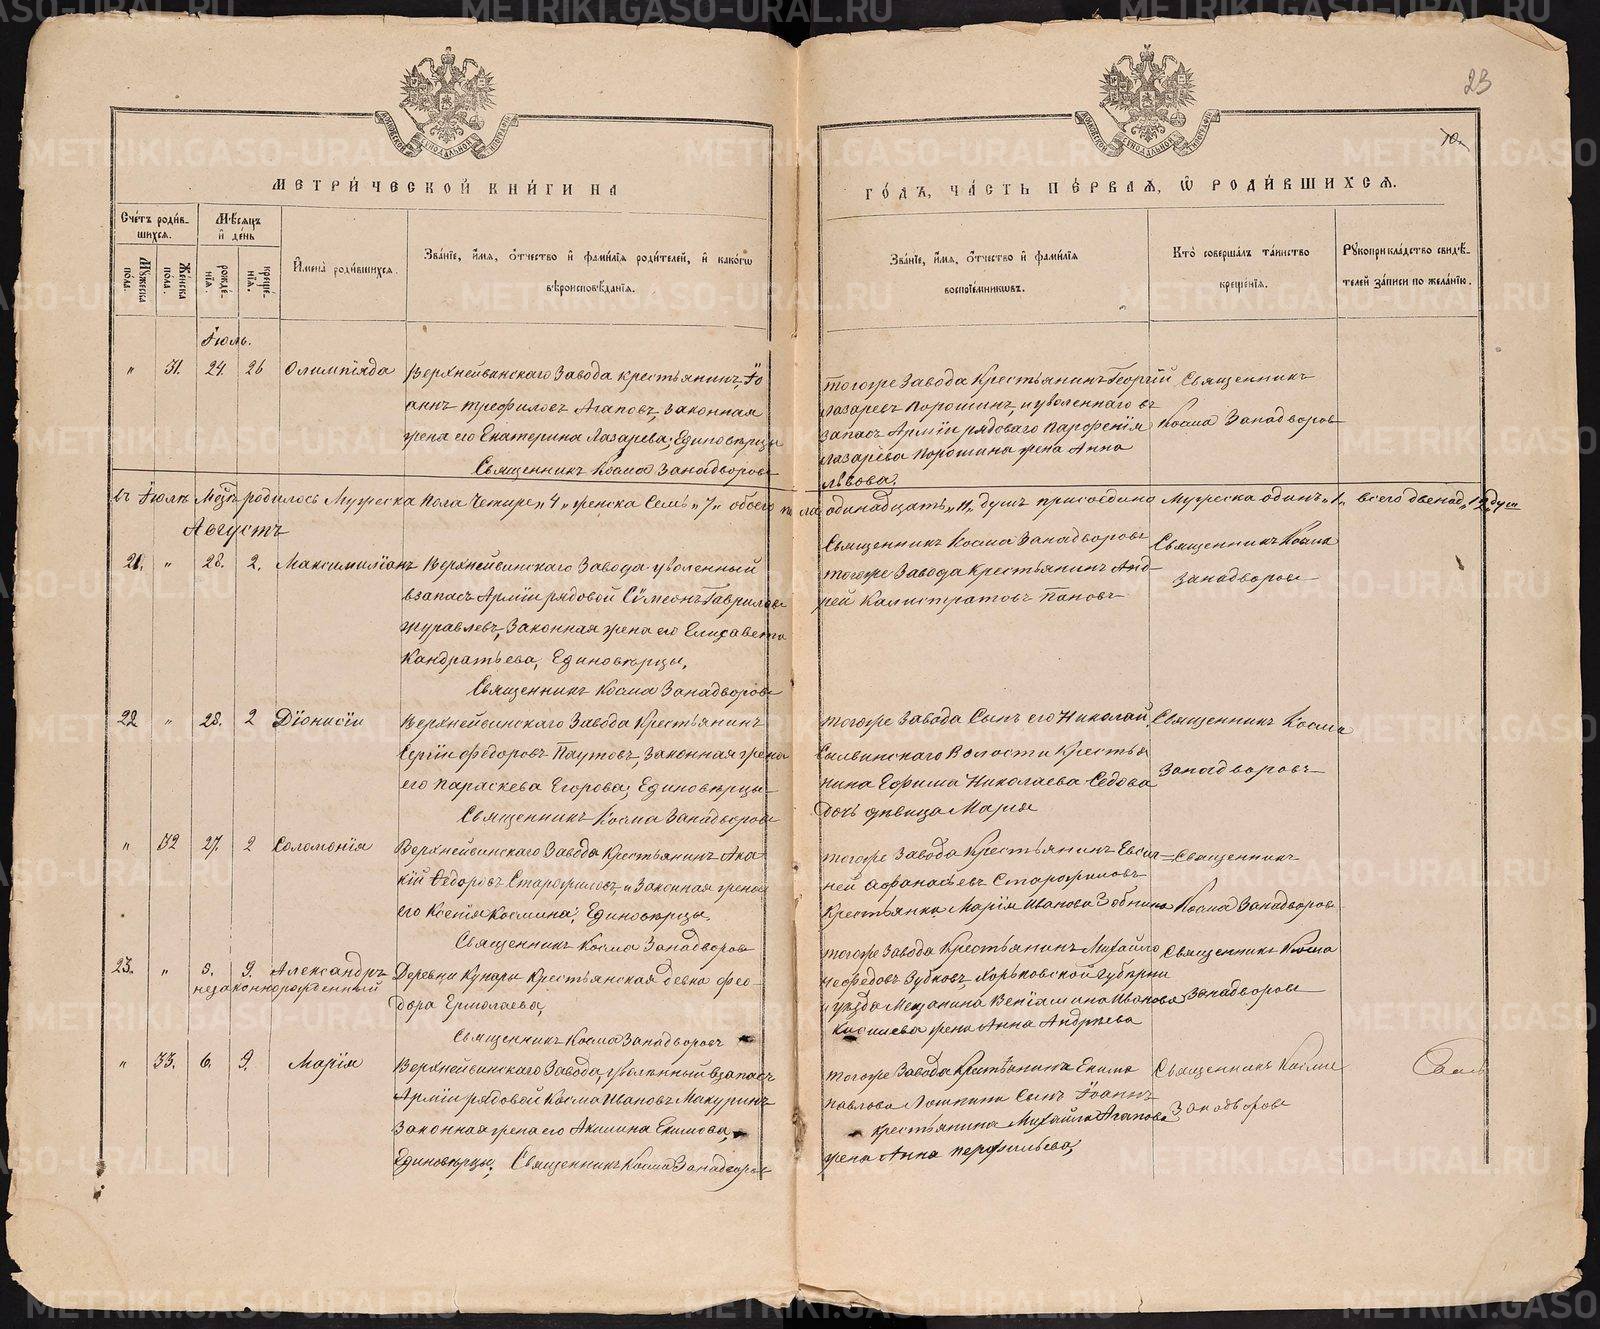 23
10
МЕТРИ́ЧЕСКОЙ КНИ́ГИ НА
ГО́ДЪ, ЧА́СТЬ ПЕ́РВАЯ, Ѿ РОДИ́ВШИХСЯ.
Счетъ роди́вшихся.
Му́жеска по́ла.
Же́нска по́ла.
Мѣ́сяцъ и де́нь
рожде́нія.
креще́нія.
Имена̀ роди́вшихся.
Зва́ніе, и́мя, о́тчество и фами́лія роди́телей, и како́гѡ вѣроисповѣ́данія.
Зва́ніе, и́мя, о́тчество и фами́лія воспріе́мниковъ.
Кто̀ соверша́лъ та́инство креще́нія.
Рукоприкла́дство свидѣ́телей за́писи по жела́нію.
Іюль.
" 31. 24. 26 Олимпіада
Верхнейвинскаго Завода крестьянинъ Іо
аннъ Трефиловъ Агаповъ, законная
жена его Екатерина Лазарева; Единовѣрцы
Священникъ Косма Западворовъ
тогоже Завода Крестьянинъ Георгій
Лазаревъ Порошинъ, и уволеннаго въ
запасъ Арміи рядоваго Парфенія
Лазарева Порошина жена Анна
Львова.
Священникъ
Косма Западворов
въ Іюлѣ Мцѣ родилось Мужеска Пола Четыре „4„ женска Семь „7„ обоего пола одинадцать „11„ душъ присоедино Мужеска одинъ „1„ всего двенад „12„ душ
Августъ
21. " 28. 2. Максимиліанъ
Верхнейвинскаго Завода уволенный
взапасъ Арміи рядовой Сѵмеонъ Гавриловъ
Журавлевъ, Законная жена его Елисавета
Кандратьева, Единовѣрцы,
Священникъ Косма Западворовъ
Священникъ Косма Западворовъ
тогоже Завода Крестьянинъ Анд-
рей Калистратовъ Пановъ
Священникъ Косма
Западворовъ
22 " 28. 2 Діонисіи
Верхнейвинскаго Завода Крестьянинъ
Сергіи Федоровъ Паутовъ, Законная жена
его Параскева Егорова; Единовѣрцы
Священникъ Косма Западворовъ
тогоже Завода Сынъ его Николай,
Сылвинскаго Волости Крестья
нина Ефима Николаева Седова
Дочь дѣвица Марья
Священникъ Косма
Западворовъ
" 32 27. 2 Соломонія
Верхнейвинскаго Завода Крестьянинъ Ака
кій Федоровъ Старожиловъ, и Законная жена
его Ксенія Космина; Единовѣрцы
Священникъ Косма Западворовъ
тогоже Завода Крестьянинъ Евсиг-
ней Афанасьевъ Старожиловъ
Крестьянка Марія Иванова Зобнина
Священникъ
Косма Западворов
23. " 5. 9. Александръ
незаконнорожденный
Деревни Кунары Крестьянская девка Фео-
дора Ермолаева,
Священникъ Косма Западворовъ
тогоже Завода Крестьянинъ Михайло
Нефедовъ Зубковъ, Харьковской губерни
и уѣзда Мещанина Веніамина Иванова
жена Анна Андрѣева
Священникъ Косма
Западворовъ
" 33. 6. 9. Марія
Верхнейвинскаго Завода, уволѣнный взапасъ
Арміи рядовой Косма Ивановъ Макуринъ
Законная жена его Акилина Екимова,
Единовѣрцы, Священникъ Косма Западворовъ
тогоже Завода Крестьянина Екима
Павлова сынъ Іоаннъ
Крестьянина Михайла Агапова
жена Анна Перфильева,
Священникъ Косма
Западворовъ
METRIKI.GASO-URAL.RU